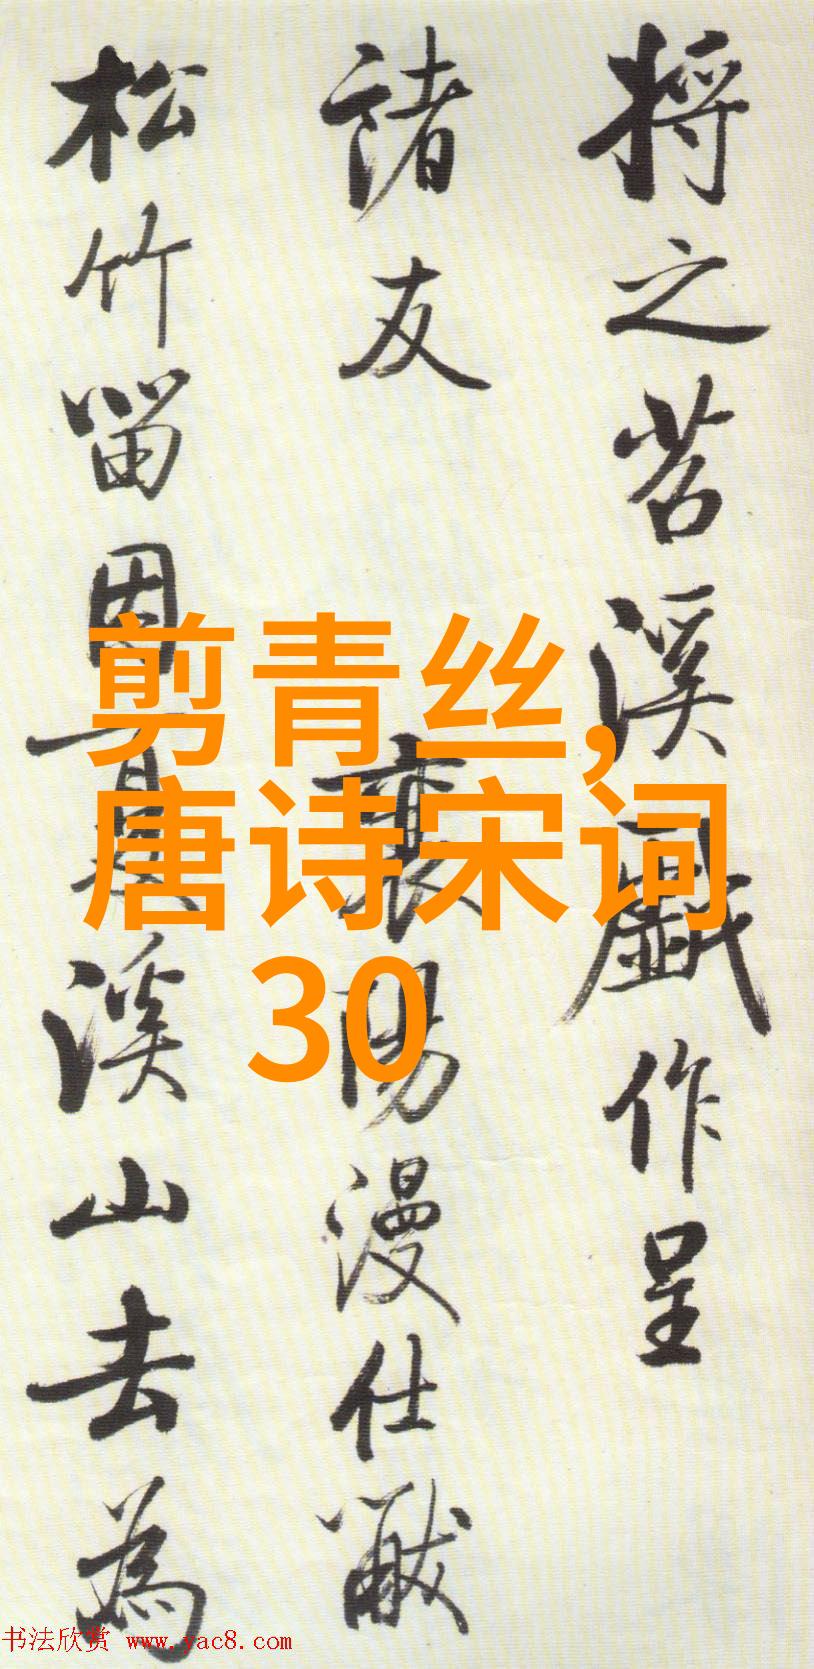 将之苕溪戲作呈
諸友 襄陽漫仕黻
松竹留因夏溪山去為
剪青丝,
唐诗宋词
30
书法欣赏 www.yac8.com